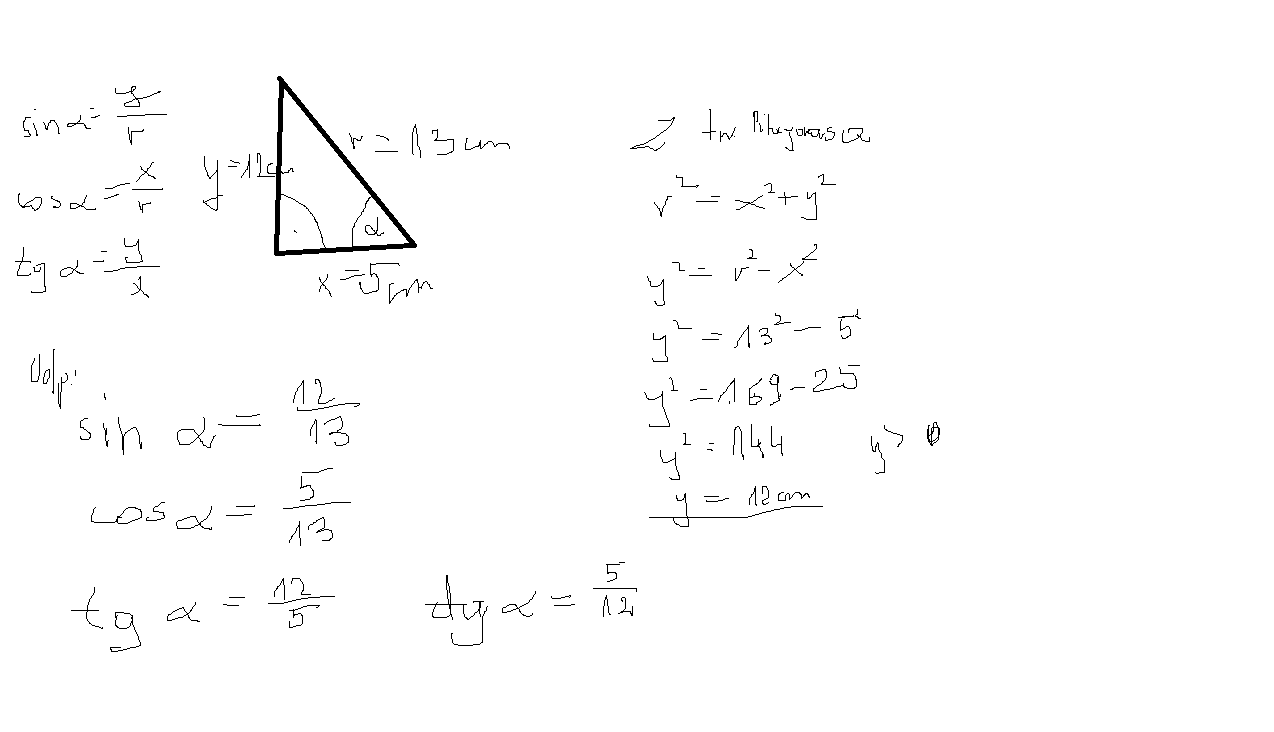 sin α = y/r
cos α = x/r
tg α = y/x
y = 12 cm
r = 13 cm
α
x = 5 cm
Z tw Pitagorasa
r² = x² + y²
y² = r² - x²
y² = 13² - 5²
y² = 169 - 25
y² = 144 y > 0
y = 12 cm
Odp:
sin α = 12/13
cos α = 5/13
tg α = 12/5
α = 5/12